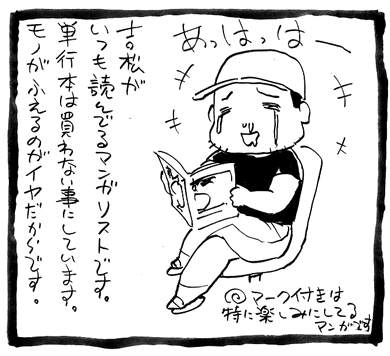 あっはっはー
吉松が
いつも読んでるマンガリストです。
単行本は買わない事にしています。
モノがふえるのがイヤだからです。
◎マーク付きは
特に楽しみにしてる
マンガです